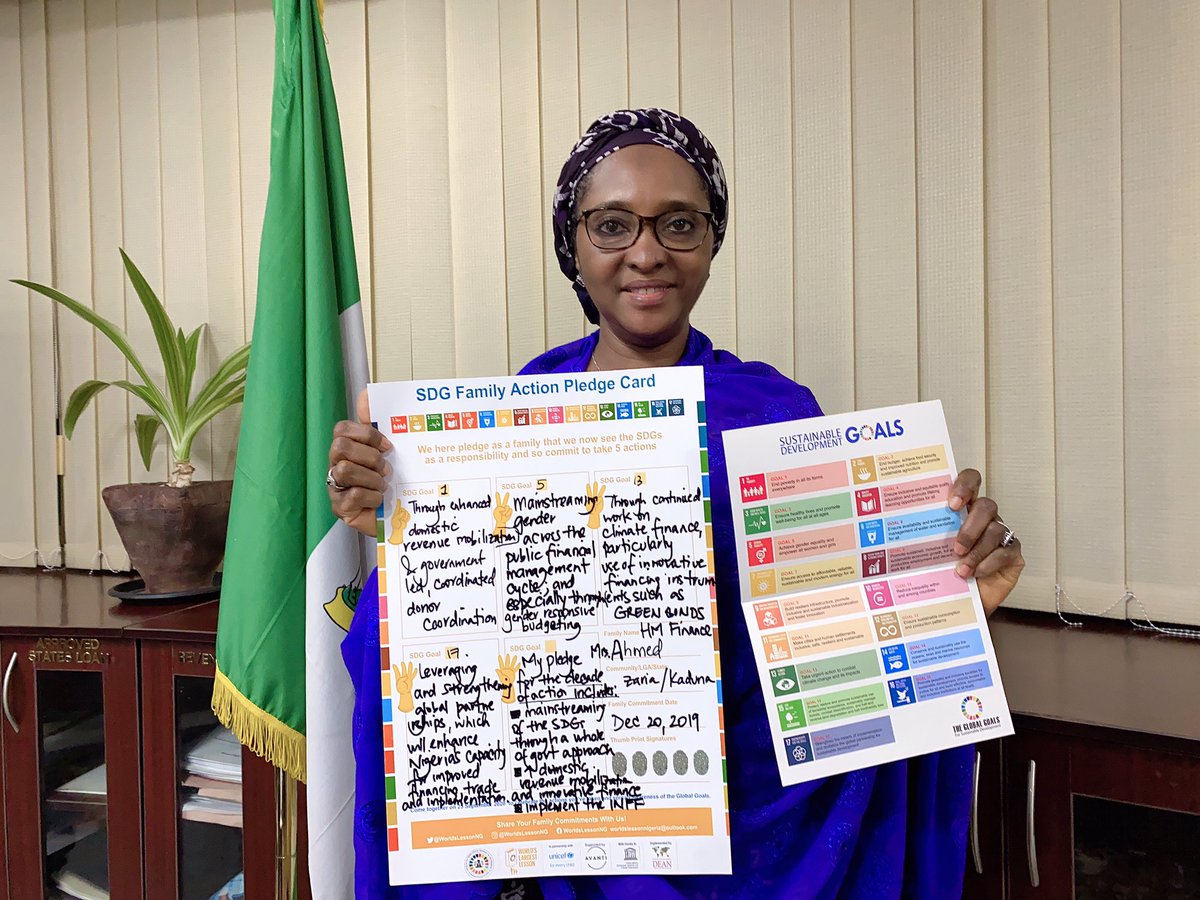 SDG Family Action Pledge Card
We here pledge as a family that we now see the SDGs
as a responsibility and so commit to take 5 actions
SDG Goal 1
Through enhanced
domestic
revenue mobilization
& government
led, coordinated
donor
coordination
SDG Goal 5
Mainstreaming
gender
across the
public financial
management
cycle, and
especially through
gender responsive
budgeting
SDG Goal 13
Through continued
work on
climate finance,
particularly
use of innovative
financing instruments such as
GREEN BONDS
HM Finance
SDG Goal 17
Leveraging
and strengthening
global partner
ships, which
will enhance
Nigerias capacity
for improved
financing, trade
and implementation
SDG Goal
My pledge
for the decade
of action include:
mainstreaming
of the SDGs
through a whole
of govt approach
domestic
revenue mobilization
and innovative finance
implement the INFF
Family Name
Mrs. Ahmed
Community/LGA/State
Zaria/Kaduna
Family Commitment Date
Dec 20, 2019
Thumb Print Signatures
Share Your Family Commitments With Us!
@WorldsLessonNG @WorldsLessonNG WorldsLessonNG worldslessonnigeria@outlook.com
WORLD'S
LARGEST
LESSON
unicef
AVANTI
DEAN
SUSTAINABLE
DEVELOPMENT GOALS
GOAL 1
End poverty in all its forms
everywhere
GOAL 2
End hunger, achieve food security
and improved nutrition and promote
sustainable agriculture
GOAL 3
Ensure healthy lives and promote
well-being for all at all ages
GOAL 4
Ensure inclusive and equitable quality
education and promote lifelong
learning opportunities for all
GOAL 5
Achieve gender equality and
empower all women and girls
GOAL 6
Ensure availability and sustainable
management of water and sanitation
for all
GOAL 7
Ensure access to affordable, reliable,
sustainable and modern energy for all
GOAL 8
Promote sustained, inclusive
Build resilient infrastructure, promote
inclusive and sustainable industrialization
and foster innovation
GOAL 10
Reduce inequality within
and among countries
GOAL 11
Make cities and human settlements
inclusive, safe, resilient and sustainable
GOAL 12
Ensure sustainable consumption
and production patterns
GOAL 13
Take urgent action to combat
climate change and its impacts
GOAL 14
Conserve and sustainably use the
oceans, seas and marine resources
THE GLOBAL GOALS
For Sustainable Development
APPROVED
STATES LOAN